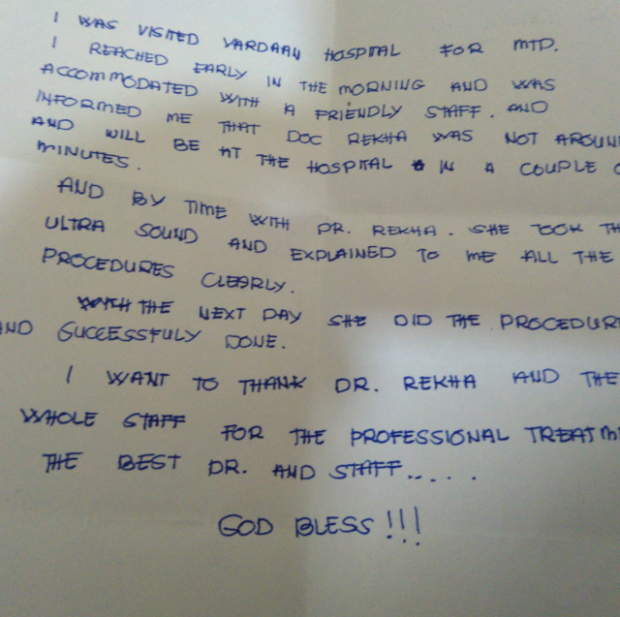 I WAS VISITED VARDAAN HOSPITAL FOR MTP.
I REACHED EARLY IN THE MORNING AND WAS
ACCOMMODATED WITH A FRIENDLY STAFF. AND
INFORMED ME THAT DOC REKHA WAS NOT AROUN
AND WILL BE AT THE HOSPITAL IN A COUPLE O
MINUTES.
AND BY TIME WITH DR. REKHA. SHE TOOK TH
ULTRA SOUND AND EXPLAINED TO ME ALL THE
PROCEDURES CLEARLY.
THE NEXT DAY SHE DID THE PROCEDUR
AND SUCCESSFULY DONE.
I WANT TO THANK DR. REKHA AND THE
WHOLE STAFF FOR THE PROFESSIONAL TREATM
THE BEST DR. AND STAFF.....
GOD BLESS!!!